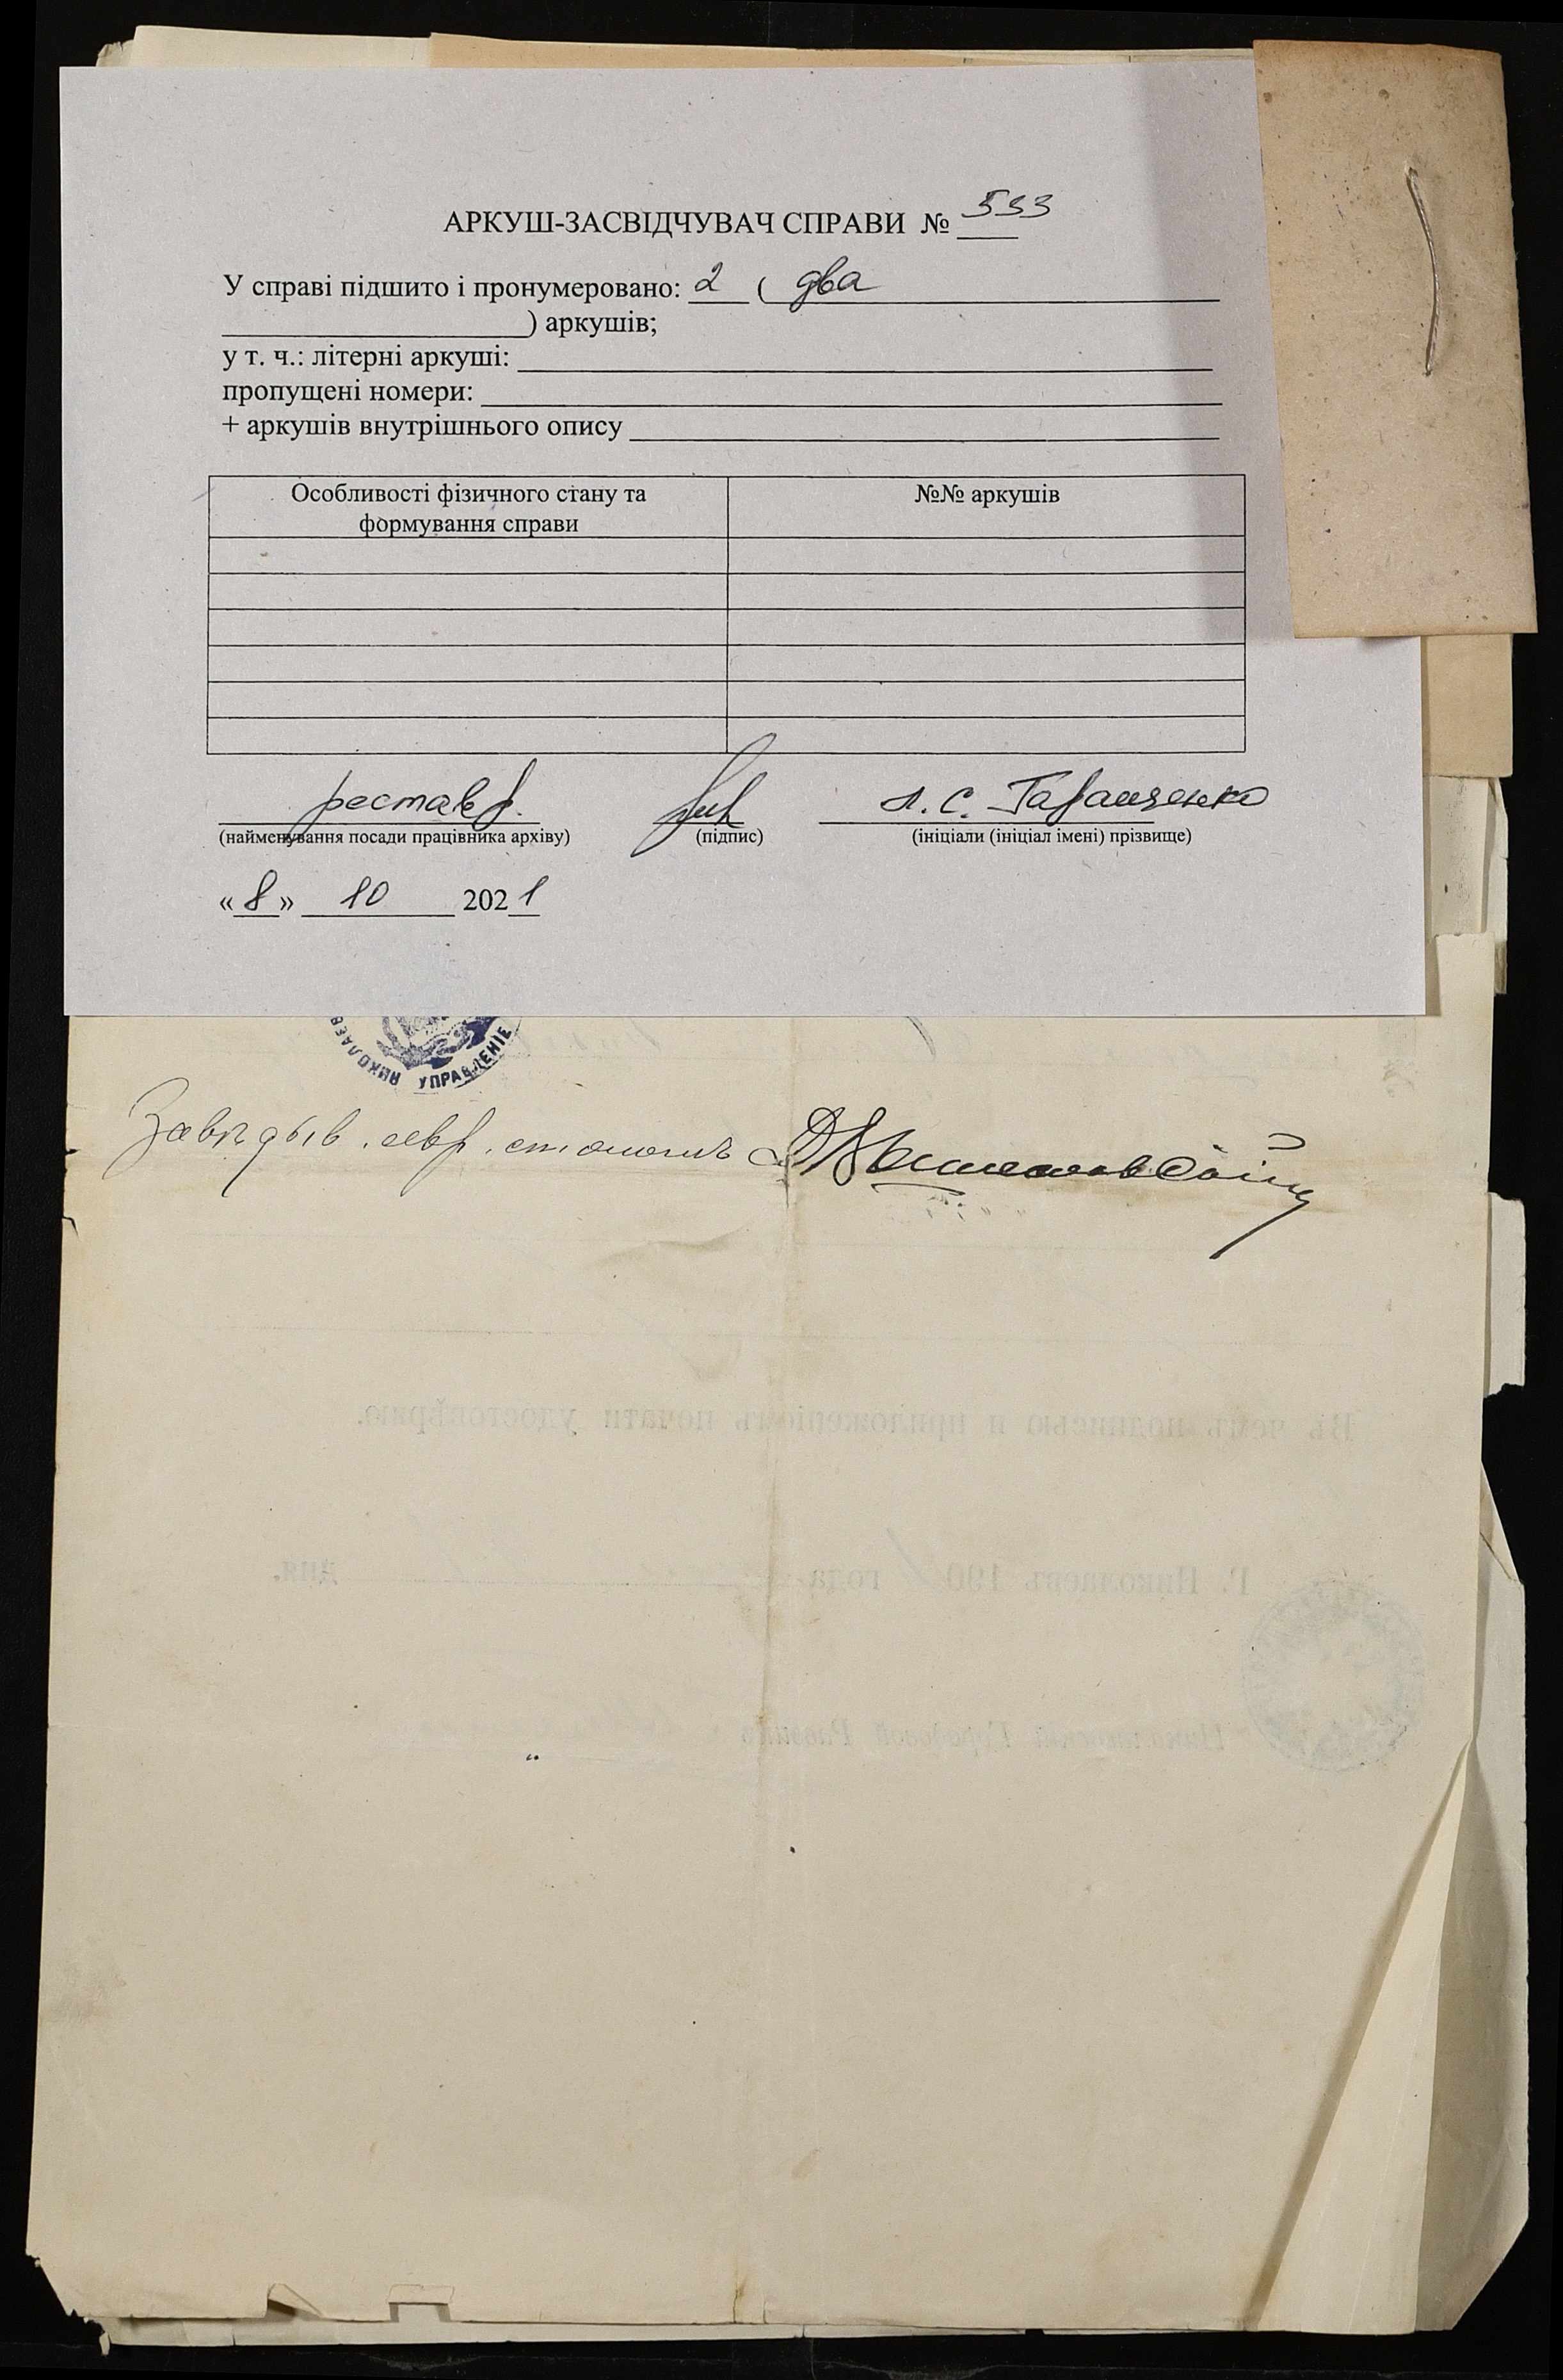 АРКУШ-ЗАСВІДЧУВАЧ СПРАВИ № 533
У справі підшито і пронумеровано: 2 ( два
) аркушів;
у т. ч.: літерні аркуші:
пропущені номери:
+ аркушів внутрішнього опису
Особливості фізичного стану та
формування справи
№№ аркушів
реставр.
Л. С. Гаращенко
(найменування посади працівника архіву)
(підпис)
(ініціали (ініціал імені) прізвище)
«8» 10 2021
НИКОЛАЕВ УПРАВЛЕНІЕ
Завѣдыв. евр. столомъ
Въ чемъ подписью и приложеніемъ печати удостовѣряю.
Г. Николаевъ 190 года дня.
Николаевскій Городовой Раввинъ